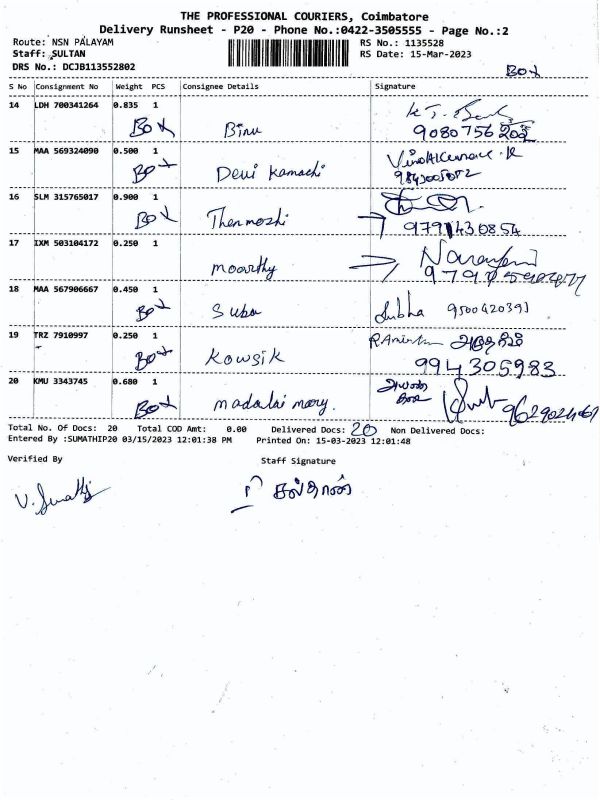 THE PROFESSIONAL COURIERS, Coimbatore
Delivery Runsheet - P20 - Phone No.:0422-3505555 - Page No.:2
Route: NSN PALAYAM RS No.: 1135528
Staff: SULTAN RS Date: 15-Mar-2023
DRS No.: DCJB113552802
Box
S No Consignment No Weight PCS Consignee Details Signature
14 LDH 700341264 0.835 1
Box Binu 9080756202
15 MAA 569324090 0.500 1
Box Devi Kamachi
16 SLM 315765017 0.900 1
Box Thenmozhi 9791430854
17 IXM 503104172 0.250 1
moorthy
18 MAA 567906667 0.450 1
Box Suba Subha 9500420391
19 TRZ 7910997 0.250 1
Box Kowsik 994305983
20 KMU 3343745 0.680 1
Box madalai mary.
Total No. Of Docs: 20 Total COD Amt: 0.00 Delivered Docs: 20 Non Delivered Docs:
Entered By :SUMATHIP20 03/15/2023 12:01:38 PM Printed On: 15-03-2023 12:01:48
Verified By Staff Signature
சுல்தான்